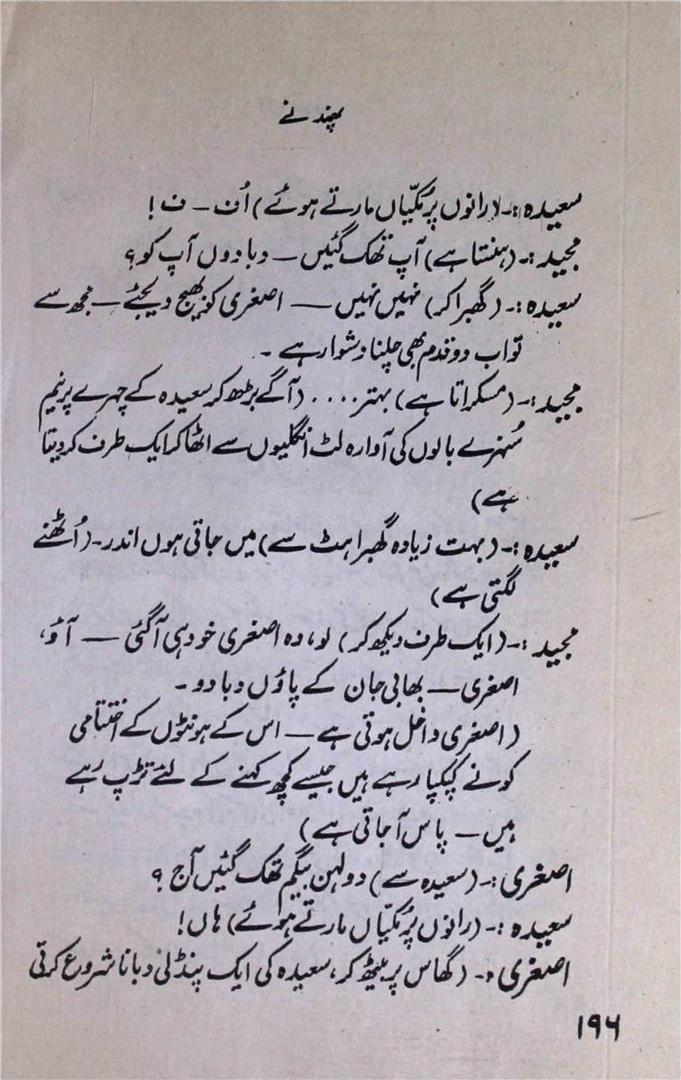 پھندنے
سعیدہ :۔ (رانوں پر مُکیّاں مارتے ہوئے) اُن ــ ف !
مجید :۔ (ہنستا ہے) آپ تھک گئیں ــ دبا دوں آپ کو ؟
سعیدہ :۔ (گھبرا کر) نہیں نہیں ــ اصغری کو بھیج دیجئے ــ مجھ سے
تو اب دو قدم بھی چلنا دشوار ہے ۔
مجید :۔ (مسکراتا ہے) بہتر .... (آگے بڑھ کر سعیدہ کے چہرے پر نیم
سُنہرے بالوں کی آوارہ لٹ انگلیوں سے اٹھا کر ایک طرف کر دیتا
ہے)
سعیدہ :۔ (بہت زیادہ گھبراہٹ سے) میں جاتی ہوں اندر ۔ (اُٹھنے
لگتی ہے)
مجید :۔ (ایک طرف دیکھ کر) لو، وہ اصغری خود ہی آ گئی ــ آؤ،
اصغری ــ بھابی جان کے پاؤں دبا دو ۔
(اصغری داخل ہوتی ہے ــ اس کے ہونٹوں کے اختتامی
کونے کپکپا رہے ہیں جیسے کچھ کہنے کے لئے تڑپ رہے
ہیں ــ پاس آ جاتی ہے)
اصغری :۔ (سعیدہ سے) دولہن بیگم تھک گئیں آج ؟
سعیدہ :۔ (رانوں پر مُکیّاں مارتے ہوئے) ہاں !
اصغری :۔ (گھاس پر بیٹھ کر، سعیدہ کی ایک پنڈلی دبانا شروع کرتی
۱۹۶